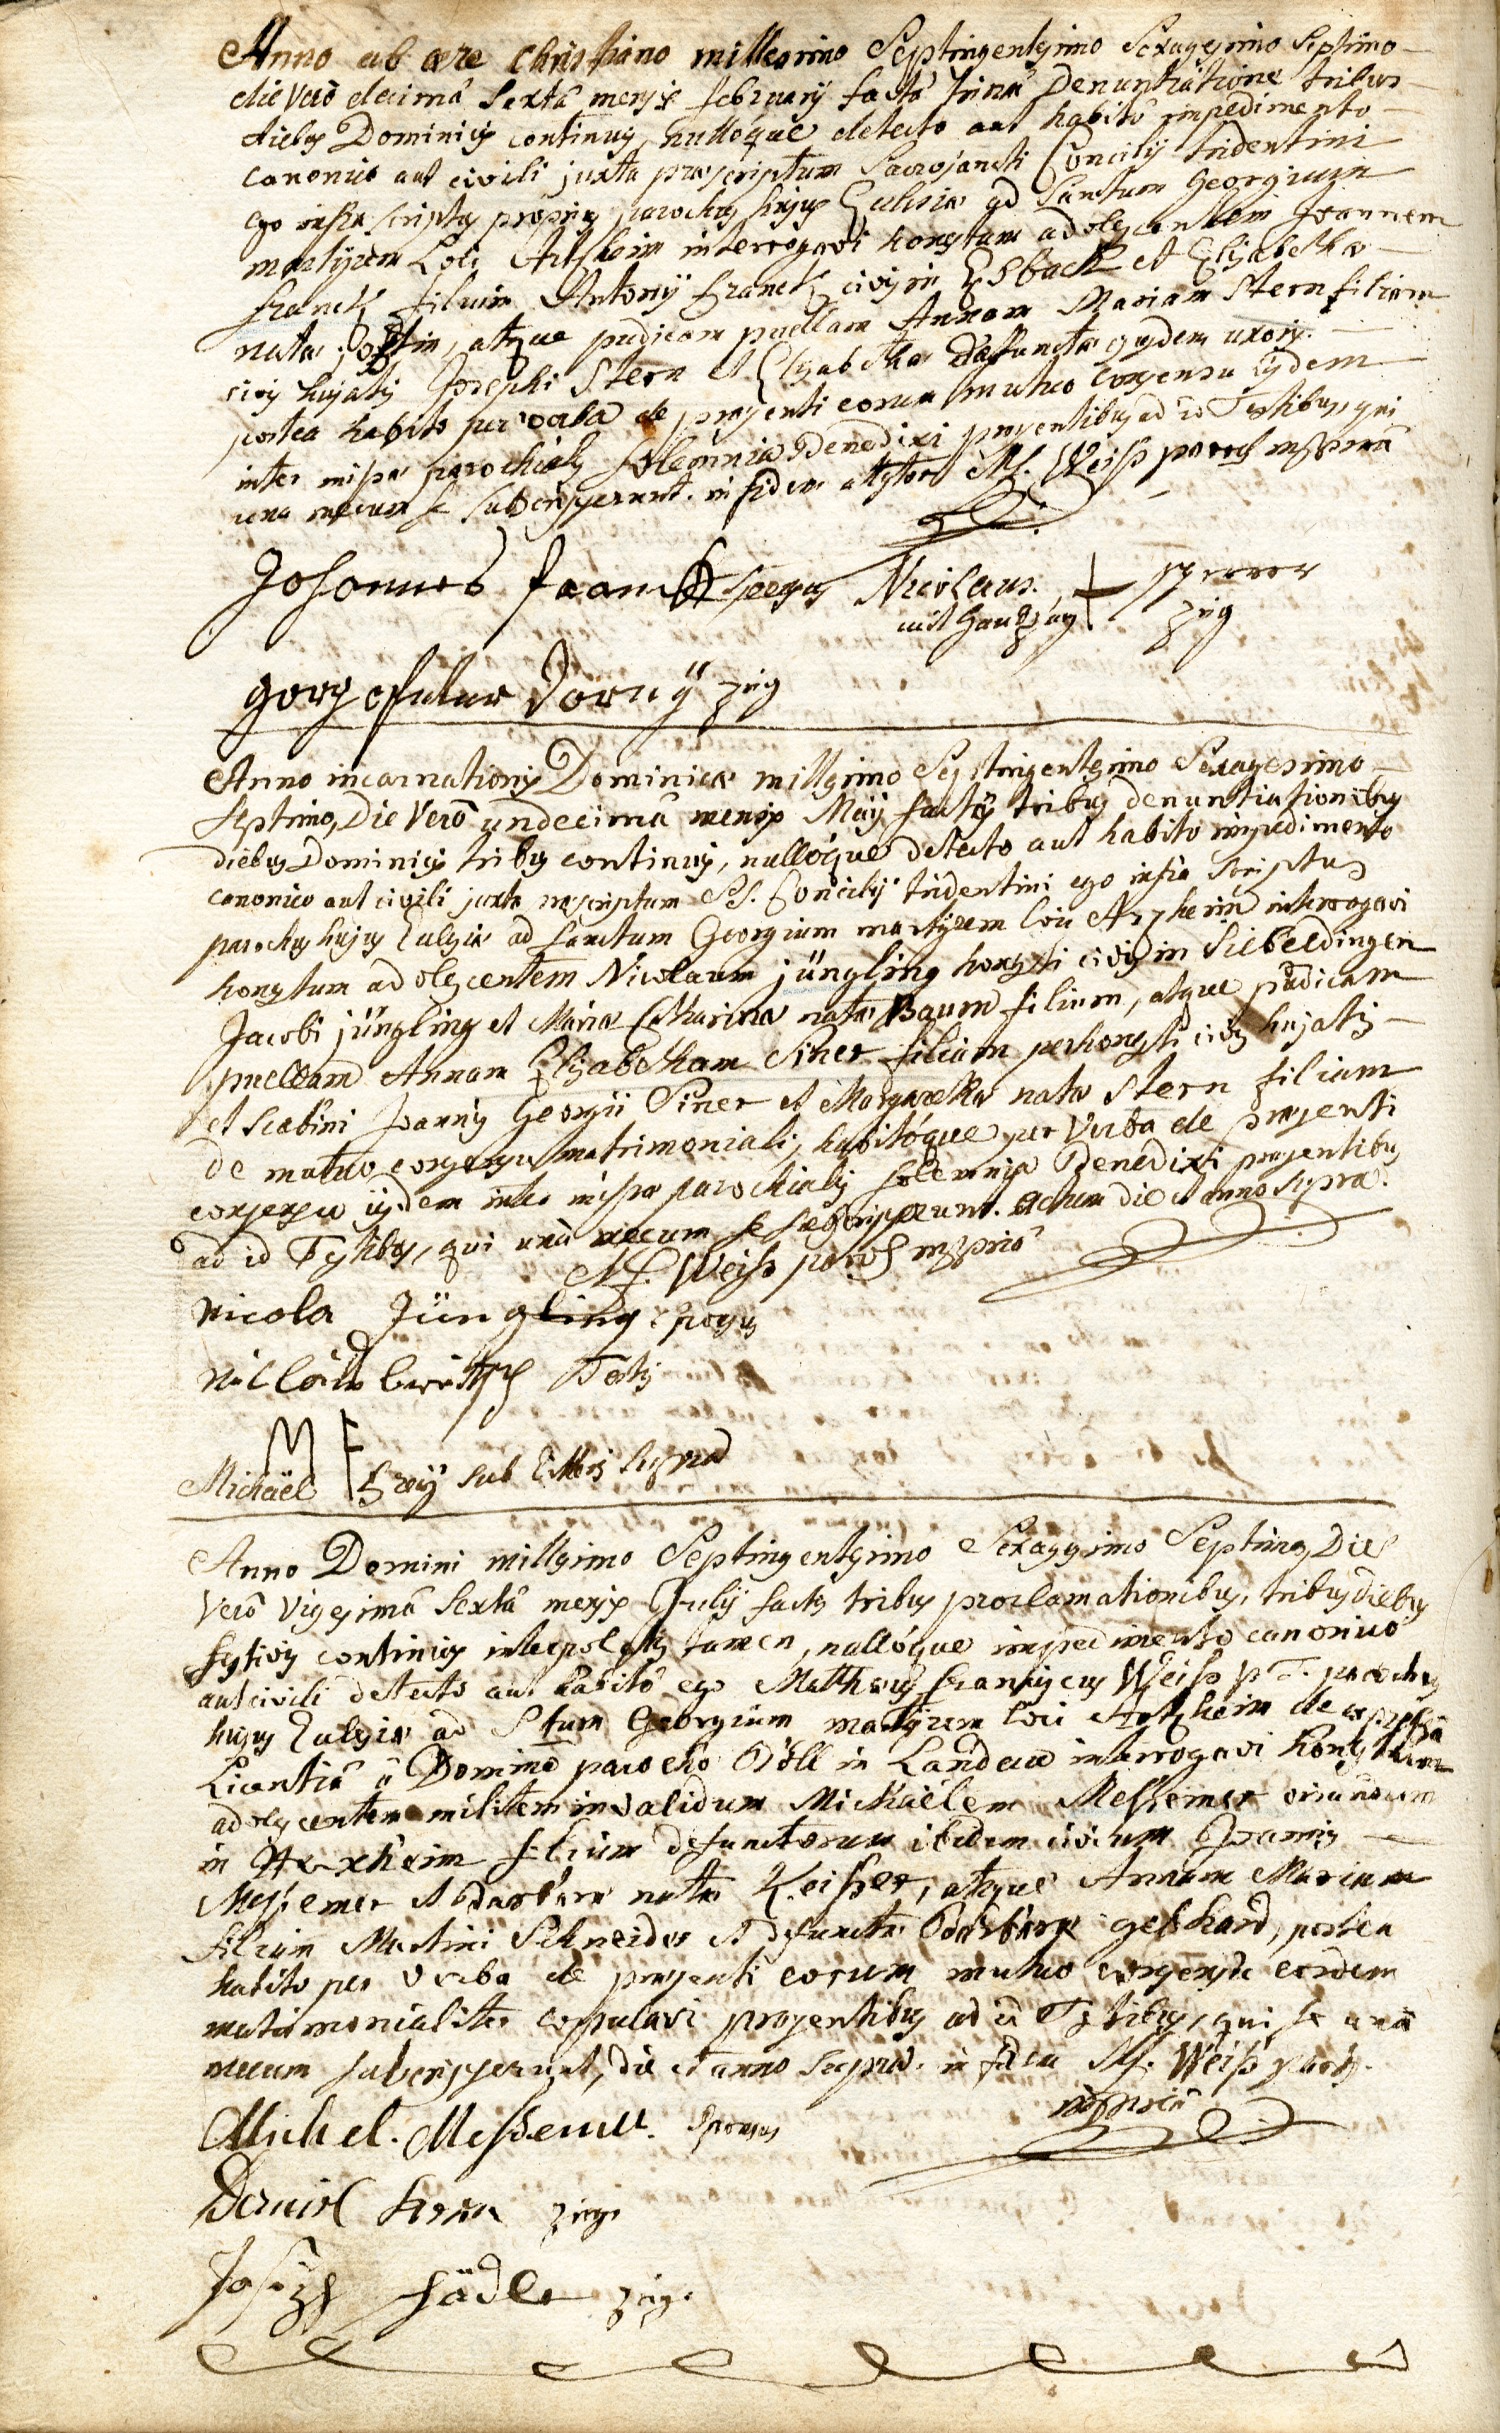 Anno ab ære Christiano millesimo Septingentesimo Sexagesimo Septimo
die verò decimâ Sextâ mensis februarÿ factâ trinâ Denuntiatione tribus
diebus Dominicis continuis, nullóque detecto aut habitô impedimento
canonico aut civili juxta præscriptum Sacrosancti Concilÿ tridentini
ego infra scriptus proprius parochus hujus Ecclesiæ ad Sanctum Georgium
martÿrem Loci Artzheim interrogavi honestum adolescentem Joannem
Franck filium Antonÿ Franck civis in Esbach et Elisabethæ
natæ, atque pudicam puellam Annam Mariam Stern filiam
civis hujatis Josephi Stern et Elisabethæ defunctæ ejusdem uxoris.
postea habito per verba de præsenti eorum mutuo consensu eosdem
inter missæ parochialis solemnia Benedixi præsentibus ad id Testibus, qui
una mecum se subscripserunt. in fidem attestor M. F. Weiss paroch mppriâ
Johannes Franck sponsus Nicolaus
mit handz zug
gorg Jorg zeig
Anno incarnationis Dominicæ millesimo Septingentesimo Sexagesimo
Septimo, Die Verò undecimâ mensis Maÿ factis tribus denuntiationibus
diebus Dominicis tribus continuis, nullóque detecto aut habito impedimento
canonico aut civili juxta præscriptum SS. Concilÿ tridentini ego infrà scriptus
parochus hujus Ecclesiæ ad Sanctum Georgium martÿrem loci Arzheim interrogavi
honestum adolescentem Nicolaum jüngling honesti civis in Siebeldingen
Jacobi jüngling et Mariæ Catharinæ natæ Baum filium, atque pudicam
puellam Annam Elisabetham Siner filiam perhonesti civis hujatis
et scabini Joannis Georgii Siner et Margarethæ natæ Stern filiam
de mutuo consensu matrimoniali, habitóque per Verba de præsenti
consensu iisdem inter missæ parochialis solemnia Benedixi præsentibus
ad id Testibus, qui unà mecum se subscripserunt. actum die et anno supra.
M. F. Weiss paroch mppriâ
Nicola Jüngling sponsus
Testis
M F
Michäel Freÿ sub litteris supra
Anno Domini millesimo Septingentesimo Sexagesimo Septimo, Die
Verò Vigesimâ Sextâ mensis Julÿ factis tribus proclamationibus, tribus diebus
festivis continuis interpolatis tamen, nullóque impedimento canonico
aut civili detecto aut habitô ego Matthæus Franciscus Weiss p. T. parochus
hujus Ecclesiæ ad Stum Georgium martÿrem loci Artzheim de expressâ
Licentiâ à Domino parocho Döll in Landau interrogavi honestum
adolescentem militem invalidum Michäelem Messemer oriundum
in Herxheim filium defunctorum ibidem civium Joannis
Messemer et Barbaræ natæ Keisser, atque Annam Mariam
filiam Martini Schneider et defunctæ Barbaræ gebhard, postea
habito per verba de præsenti eorum mutuo consensu eosdem
matrimonialiter copulavi præsentibus ad id Testibus, qui se unà
mecum subscripserunt, die et anno supra. in fidem M. F. Weiss paroch.
mppriâ
Michel. Messemer. Sponsus
Daniel Kern zeig.
Joseph Hädle zeig.